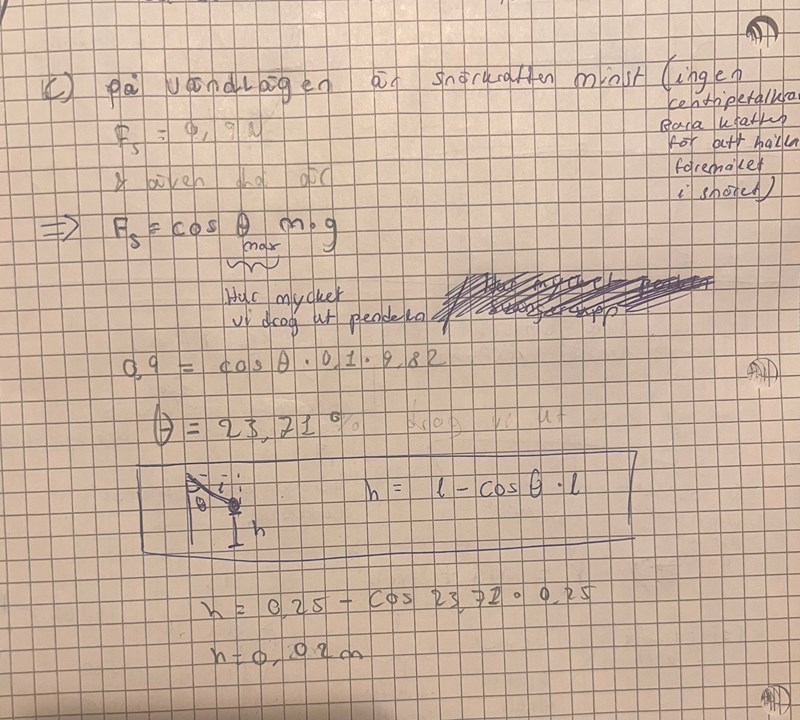 c) på vändlägen är snörkraften minst (ingen
centripetalkra
Bara kraften
för att hålla
föremålet
i snöret)
Fs = 0,9 N
även
⇒ Fs = cos θ m·g
max
Hur mycket
vi drog ut pendeln
0,9 = cos θ · 0,1 · 9,82
θ = 23,71° drog vi ut
l
θ
h
h = l - cos θ · l
h = 0,25 - cos 23,71 · 0,25
h = 0,02 m